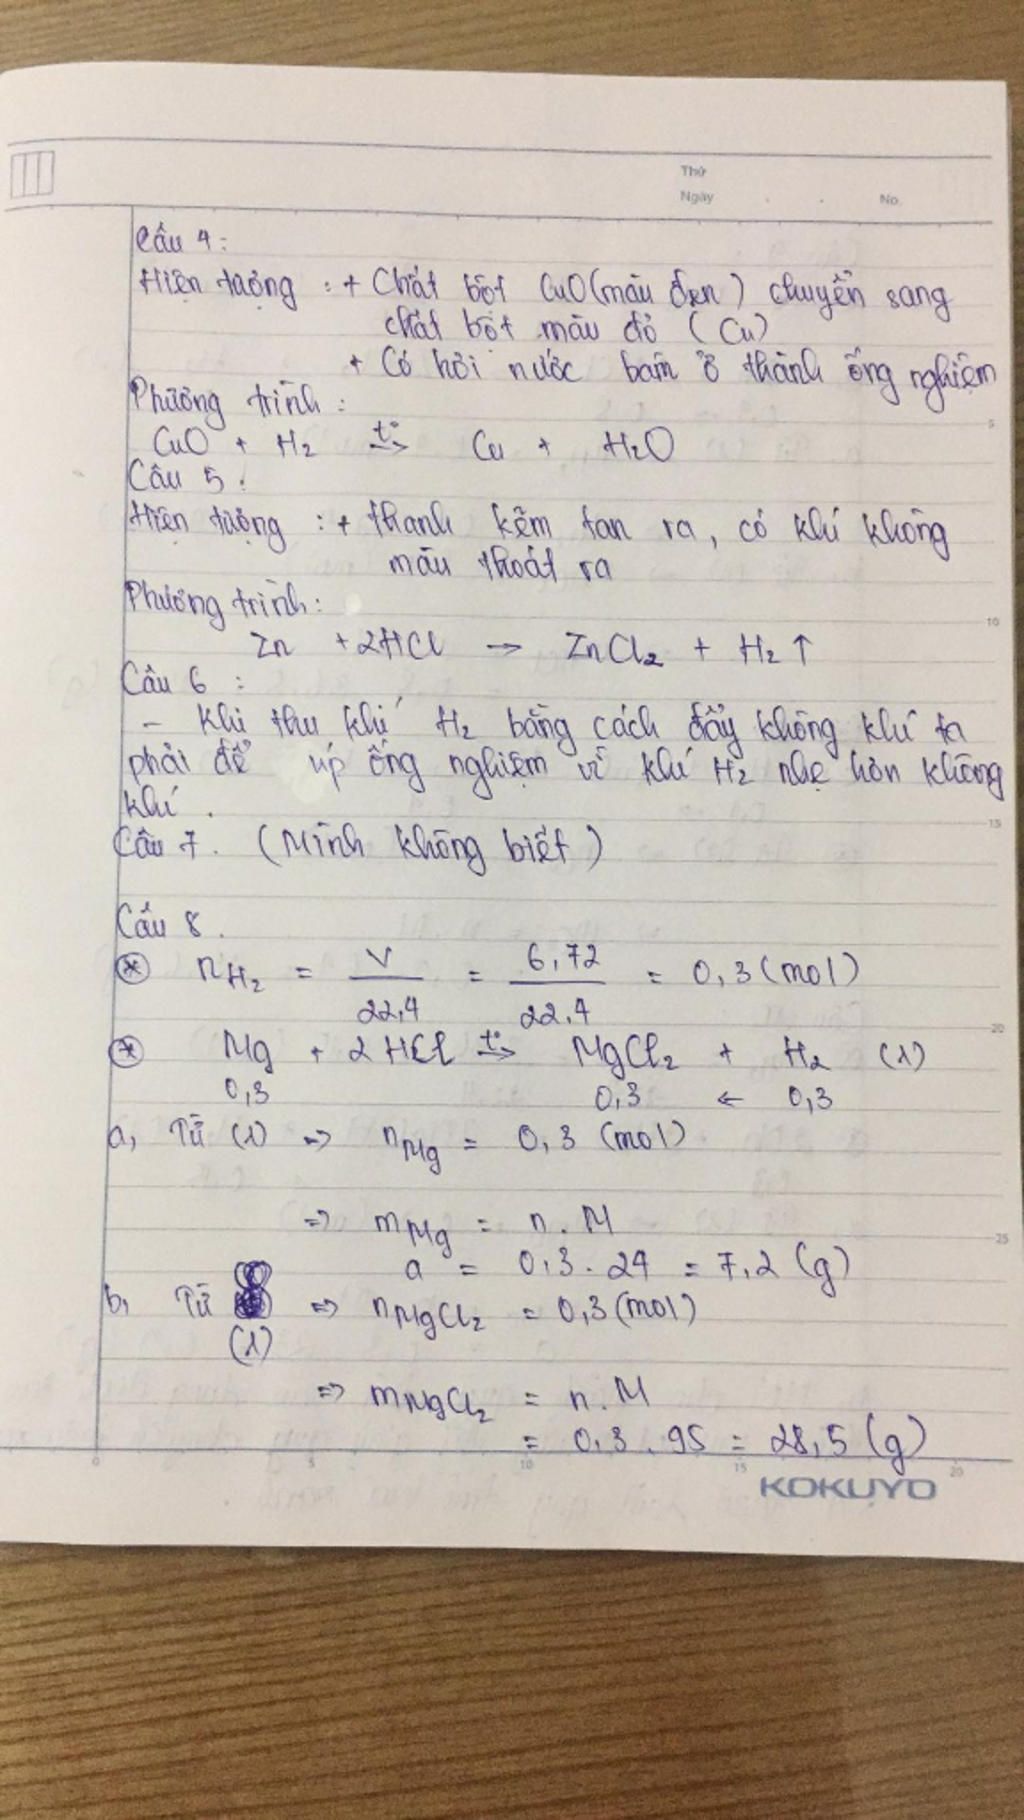 Thứ
Ngày . . No.
Câu 4:
Hiện tượng : + Chất bột CuO (màu đen) chuyển sang
chất bột màu đỏ (Cu)
+ Có hơi nước bám ở thành ống nghiệm
Phương trình:
CuO + H₂ →(t°) Cu + H₂O
Câu 5:
Hiện tượng : + thanh kẽm tan ra, có khí không
màu thoát ra
Phương trình:
Zn + 2HCl → ZnCl₂ + H₂ ↑
Câu 6 :
- Khi thu khí H₂ bằng cách đẩy không khí ta
phải để úp ống nghiệm vì khí H₂ nhẹ hơn không
khí.
Câu 7. (Mình không biết)
Câu 8.
* nH₂ = V/22,4 = 6,72/22,4 = 0,3 (mol)
* Mg + 2HCl →(t°) MgCl₂ + H₂ (1)
0,3 0,3 ← 0,3
a, Từ (1) => nMg = 0,3 (mol)
=> mMg = n.M
a = 0,3.24 = 7,2 (g)
b, Từ (1) => nMgCl₂ = 0,3 (mol)
=> mMgCl₂ = n.M
= 0,3.95 = 28,5 (g)
KOKUYO